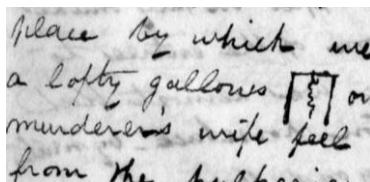 place by which we
a lofty gallows or
murderer's wife feel
from the